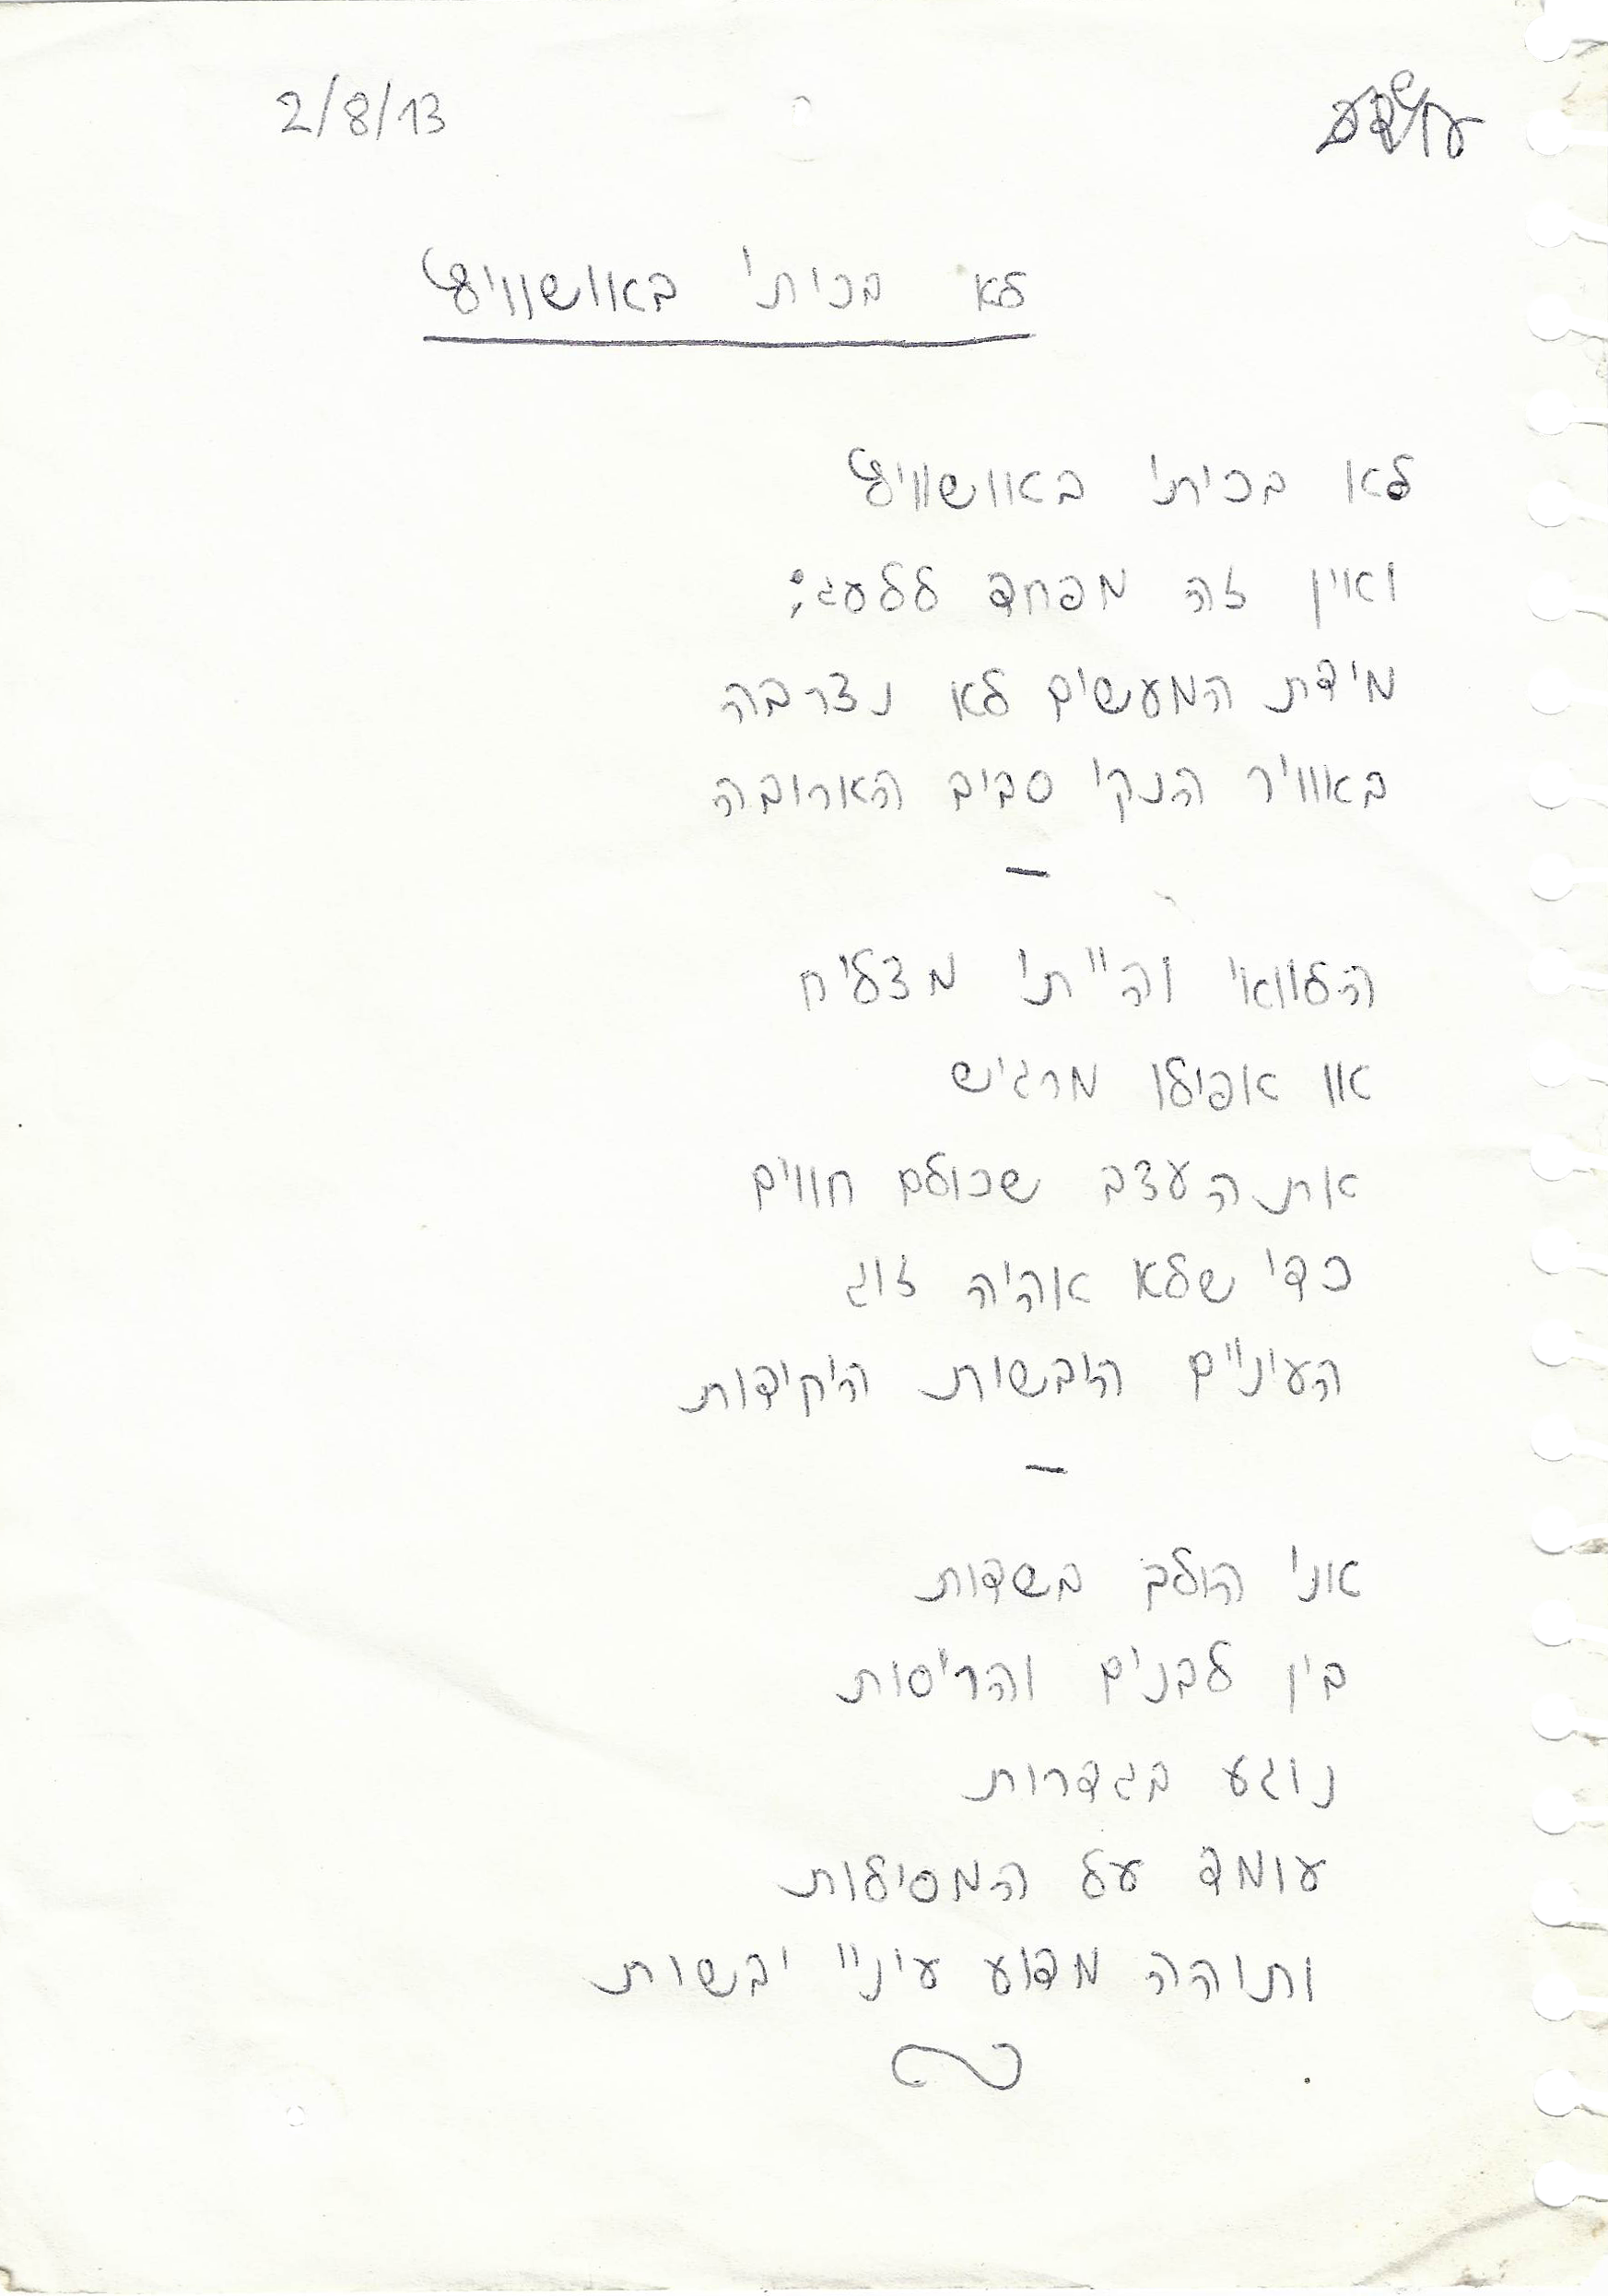 2/8/13
לא בכיתי באושוויץ
לא בכיתי באושוויץ
ואין זה מפחד ללעג;
מידת המעשים לא נצרבה
באוויר הנקי סביב הארובה
–
הלוואי והייתי מצליח
או אפילו מרגיש
את העצב שכולם חווים
כדי שלא אהיה זוג
העיניים היבשות היחידות
–
אני הולך בשדות
בין לבנים והריסות
נוגע בגדרות
עומד על המסילות
ותוהה מדוע עיניי יבשות
.